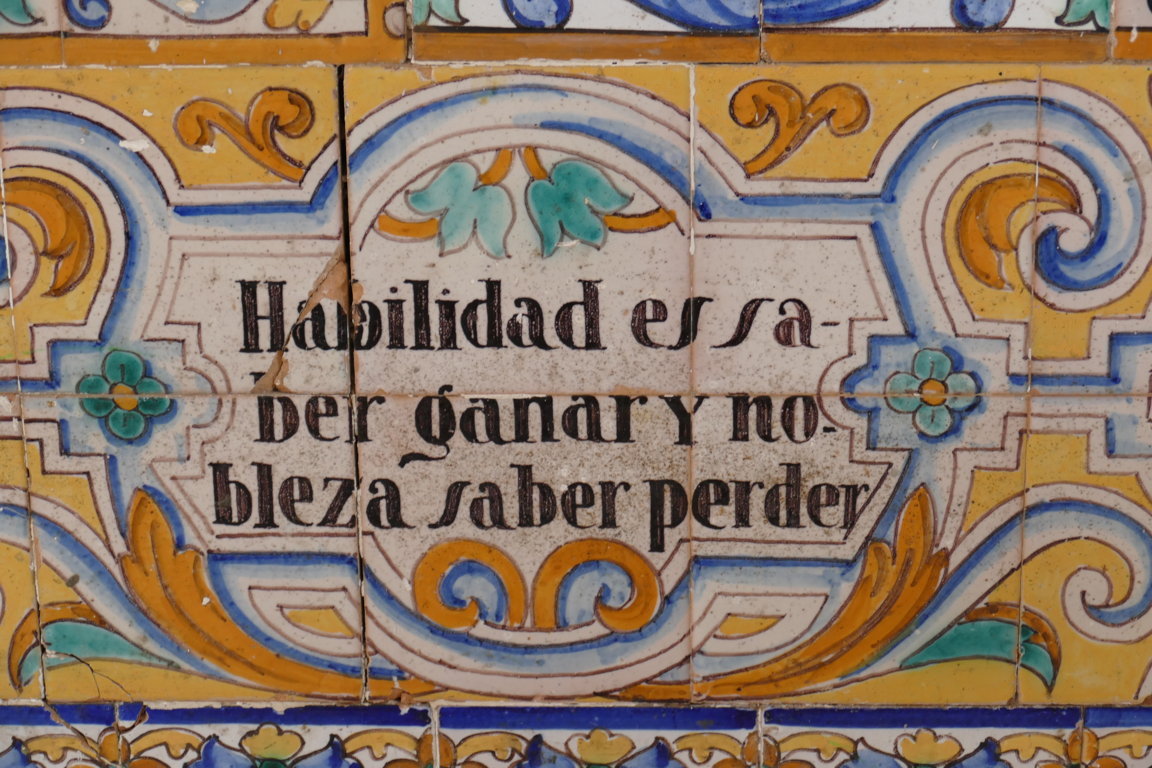 Habilidad es sa-
ber ganar y no-
bleza saber perder